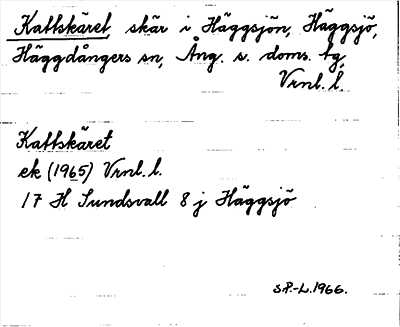 Kattskäret, skär i Häggsjön, Häggsjö,
Häggdångers sn, Ång. s. doms. tg,
Vrnl. l.
Kattskäret
ek (1965) Vrnl. l.
17 H Sundsvall 8 j Häggsjö
S.P.-L. 1966.